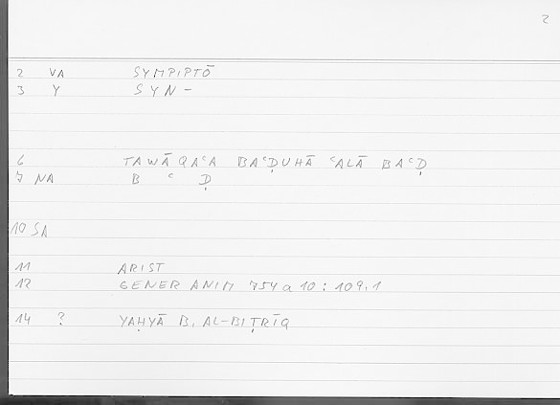 2
2 VA SYMPIPTŌ
3 Y SYN-
6 TAWĀQAʿA BAʿḌUHĀ ʿALĀ BAʿḌ
7 NA B ʿ Ḍ
10 SA
11 ARIST
12 GENER ANIM 754a10:109,1
14 ? YAḤYĀ B. AL-BIṬRĪQ